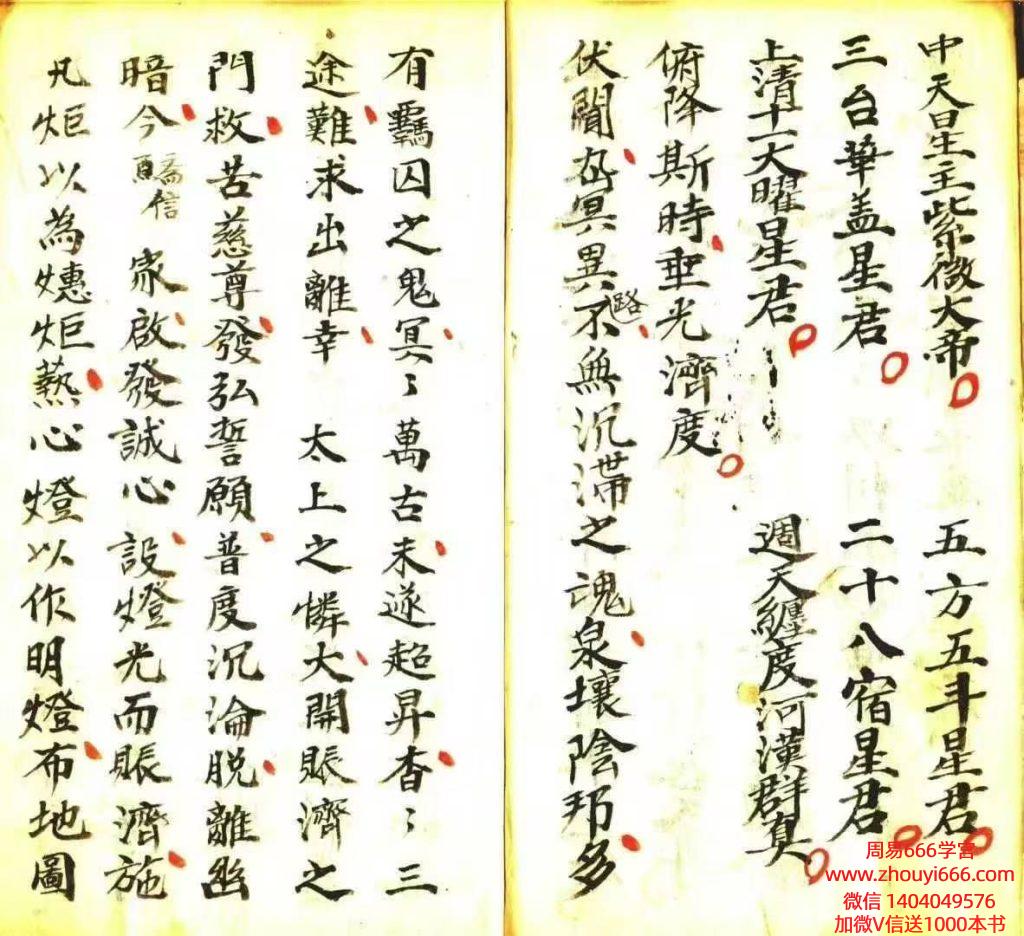 中天星主紫微大帝 五方五斗星君
三台華盖星君 二十八宿星君
上清十一大曜星君 週天纏度河漢群真
俯降斯時垂光濟度
伏聞冥異路不無沉滯之魂泉壤陰邦多
有羈囚之鬼冥〻萬古未遂超昇杳〻三
途難求出離幸 太上之憐大開賬濟之
門救苦慈尊發弘誓願普度沉淪脱離幽
暗今齋信衆啟發誠心設燈光而賬濟施
凡炬以為炬爇心燈以作明燈布地圖
周易666学宫
www.zhouyi666.com
微信 1404049576
加微V信送1000本书